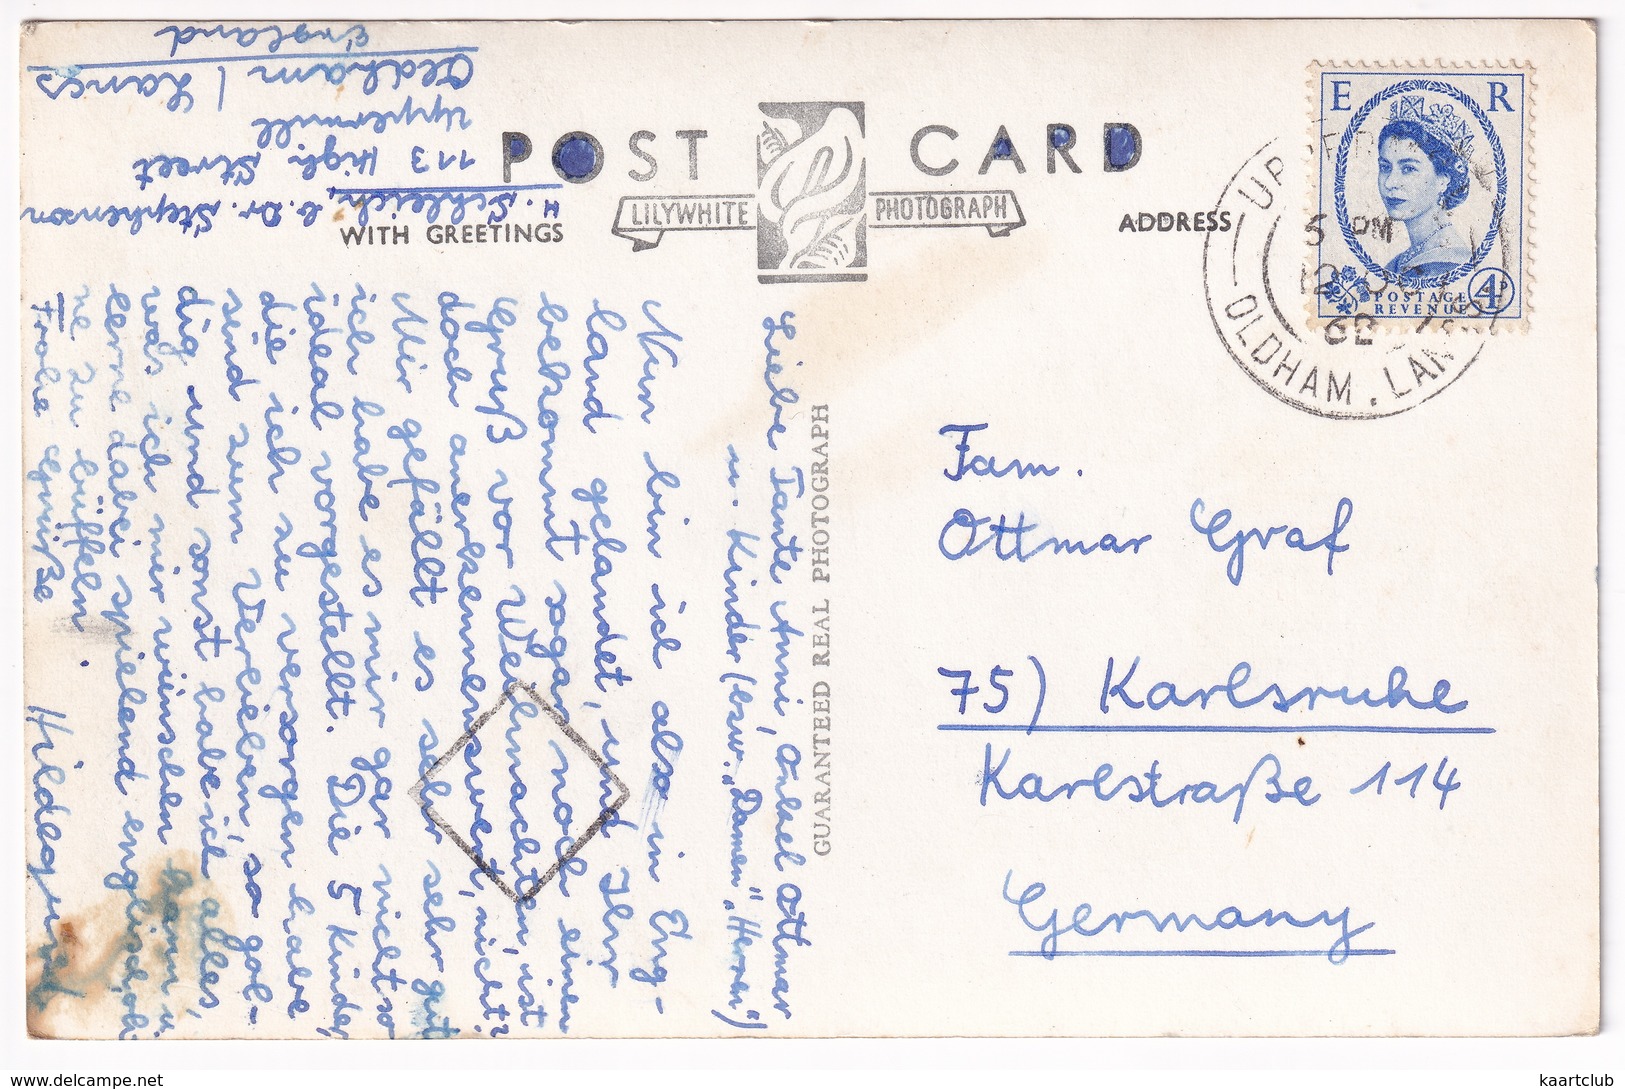 POST CARD
LILYWHITE PHOTOGRAPH
WITH GREETINGS
ADDRESS
H. Schleich, b. Dr. Stephenson
113 High Street
Uppermill
Oldham / Lancs
England
E R
POSTAGE
REVENUE
4D
5 PM
12 OC
62
OLDHAM. LAN
GUARANTEED REAL PHOTOGRAPH
Liebe Tante Anni, Onkel Ottmar
u. Kinder (bzw. "Damen" "Herren")
Nun bin ich also in Eng-
land gelandet, und Ihr
bekommt sogar noch einen
Gruß vor Weihnachten, ist
doch anerkennenswert, nicht?
Mir gefällt es sehr sehr gut
ich habe es mir gar nicht so
ideal vorgestellt. Die 5 Kinder,
die ich zu versorgen habe
sind zum Verlieben, so gol-
dig und sonst habe ich alles,
was ich mir wünschen kann u.
lerne dabei spielend englisch oh-
ne zu büffeln.
Frohe Grüße Hildegund
Fam.
Ottmar Graf
75) Karlsruhe
Karlstraße 114
Germany
kaartclub